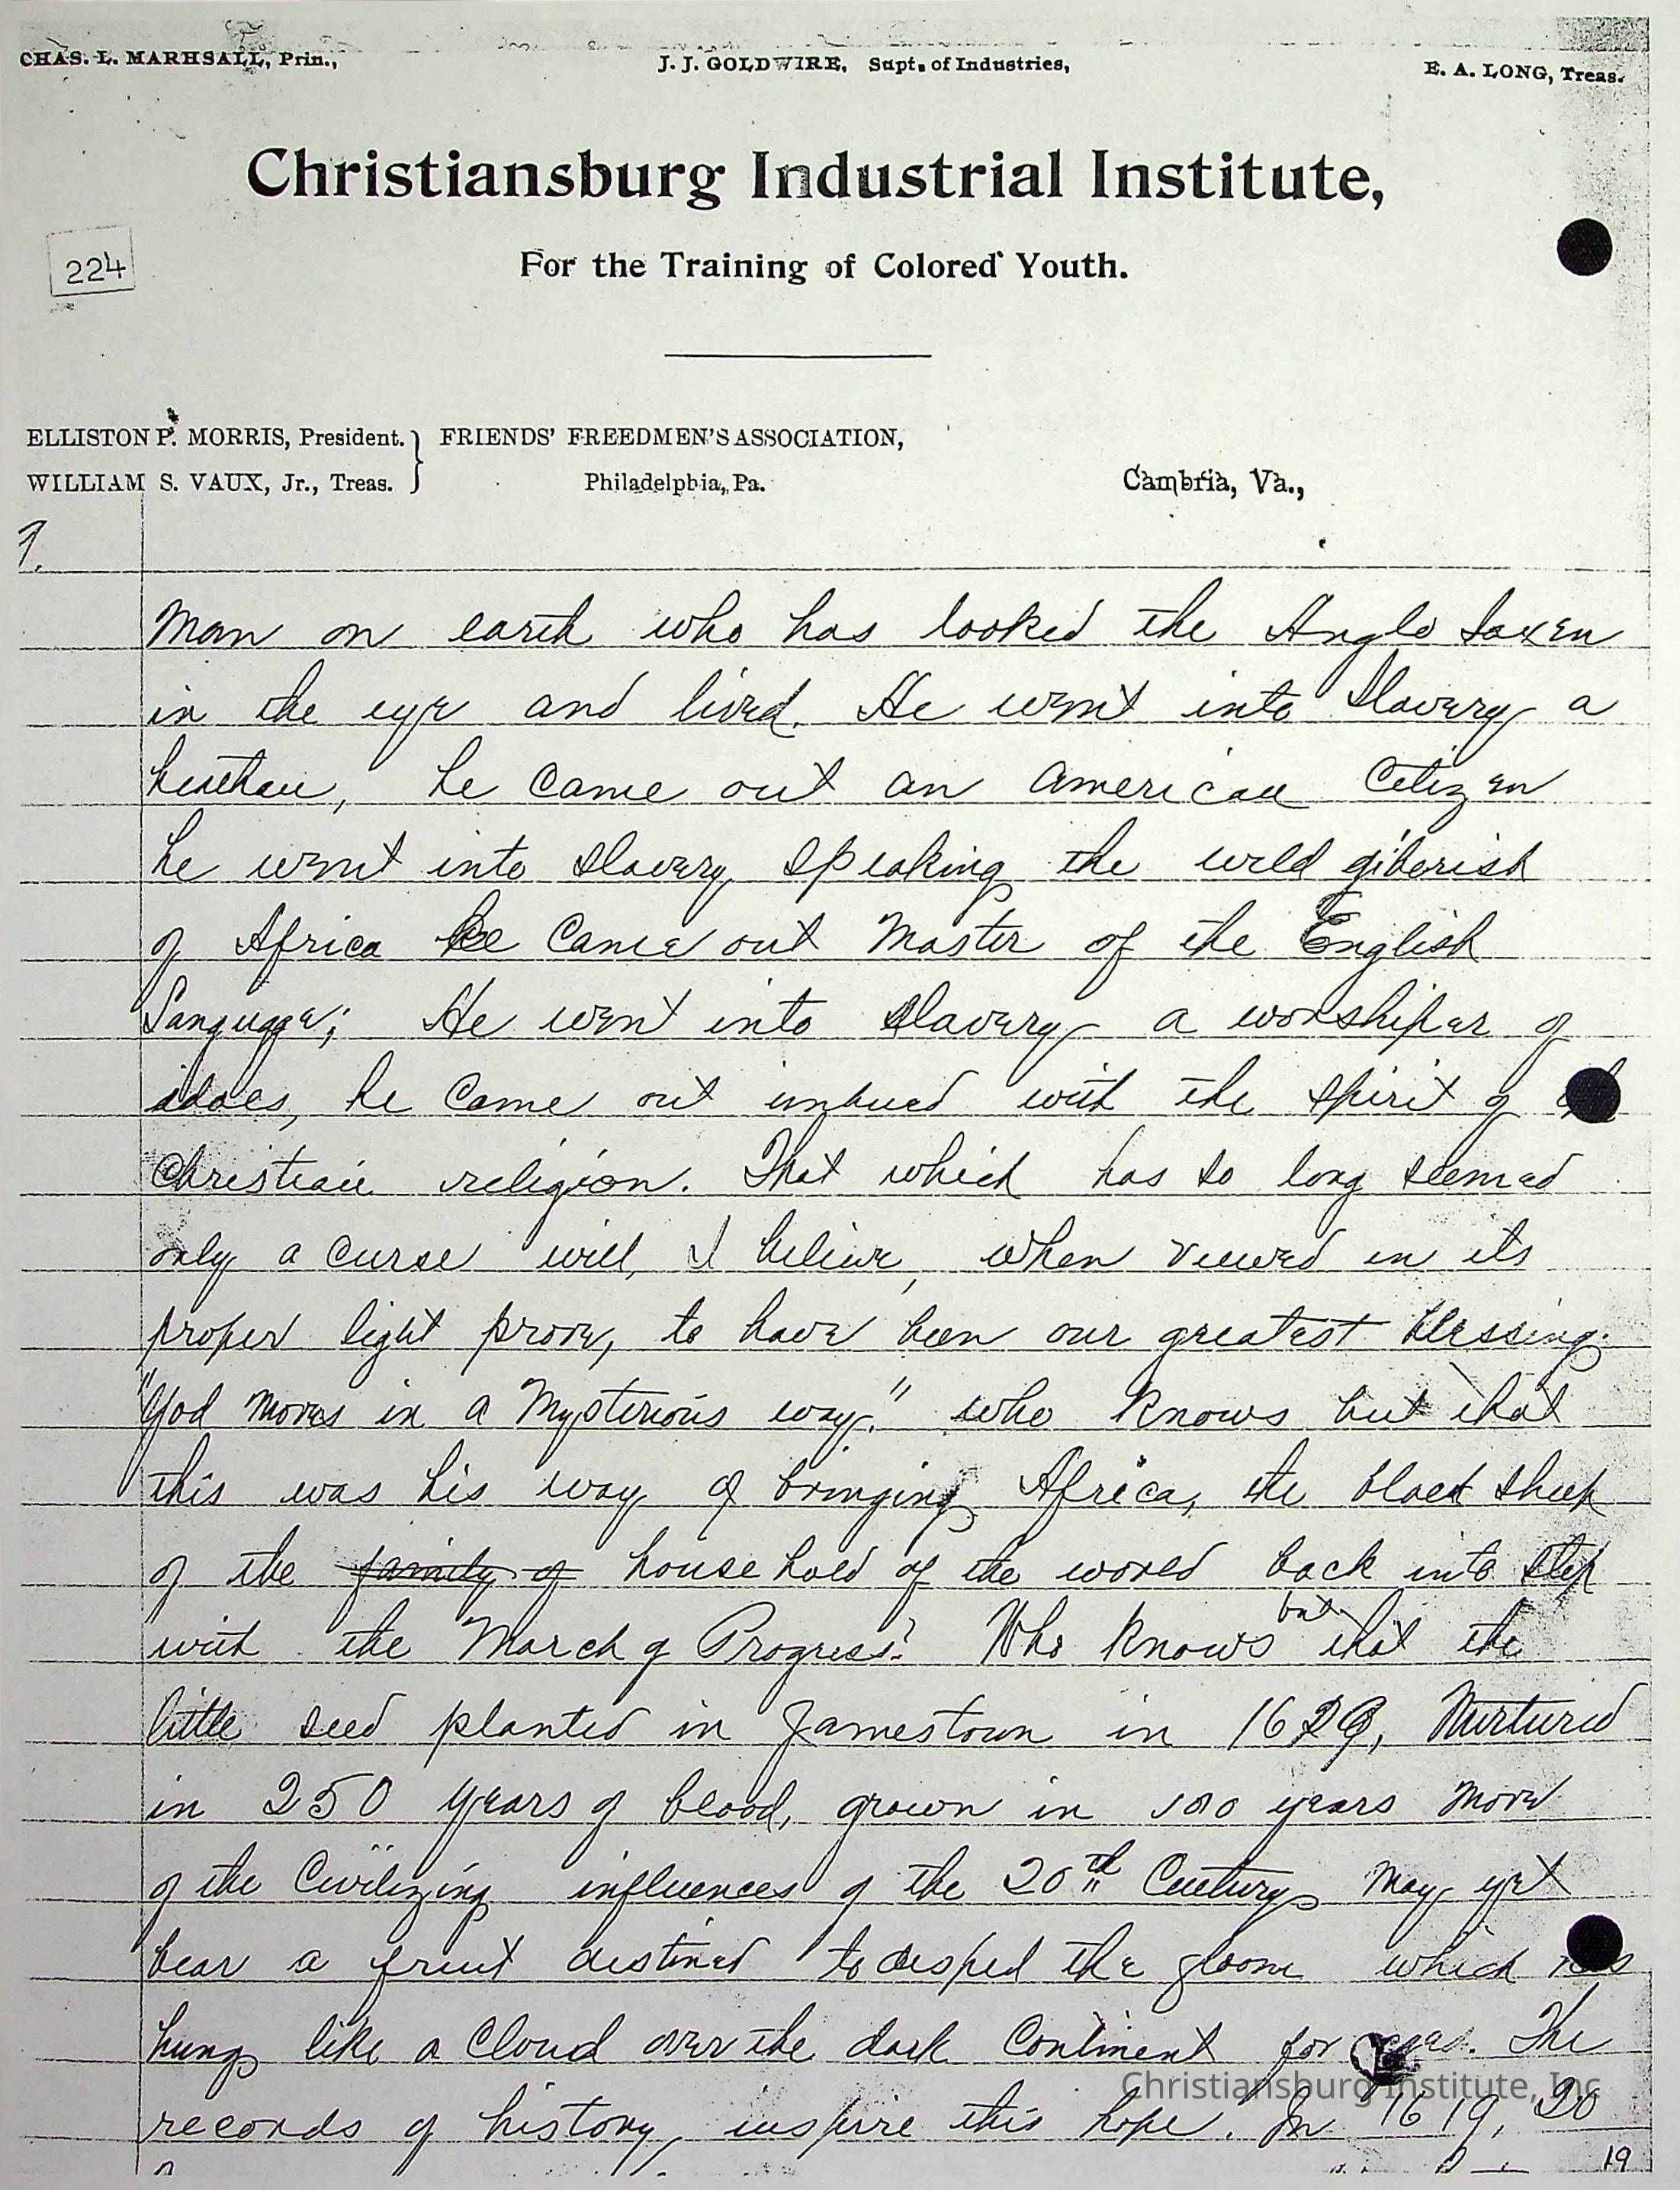 CHAS. L. MARHSALL, Prin., J. J. GOLDWIRE, Supt. of Industries, E. A. LONG, Treas.
Christiansburg Industrial Institute,
224
For the Training of Colored Youth.
ELLISTON P. MORRIS, President. } FRIENDS' FREEDMEN'S ASSOCIATION,
WILLIAM S. VAUX, Jr., Treas. Philadelphia, Pa. Cambria, Va.,
7.
Man on earth who has looked the Anglo Saxen
in the eye and lived. He went into Slavery a
heathen, he came out an American Citizen
he went into slavery speaking the wild giberish
of Africa he came out Master of the English
Langugge; He went into slavery a worshiper of
idoles, he came out imbued with the spirit of
Christian religion. That which has so long seemed
only a curse will, I believe, when viewed in its
proper light prove, to have been our greatest blessing.
"God moves in a Mysterious way." who knows but that
this was his way of bringing Africa, the black sheep
of the family of house hold of the world back into step
with the March of Progress? Who knows but that the
little seed planted in Jamestown in 1629, Nurtured
in 250 years of blood, grown in 100 years more
of the Civilizing influences of the 20th Century may yet
bear a fruit destined to dispel the gloom which has
hung like a Cloud over the dark Continent for ages. The
records of history, inspire this hope. In 1619, 20
19
Christiansburg Institute, Inc